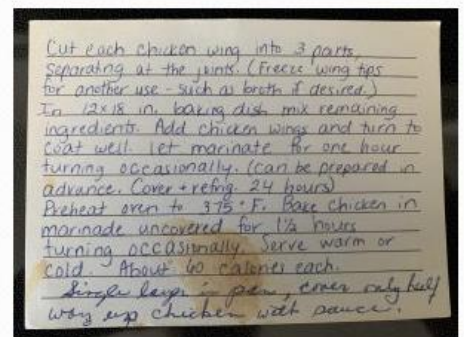 Cut each chicken wing into 3 parts,
separating at the joints. (Freeze wing tips
for another use - such as broth if desired.)
In 12x18 in. baking dish mix remaining
ingredients. Add chicken wings and turn to
coat well. Let marinate for one hour
turning occasionally. (can be prepared in
advance. Cover + refrig. 24 hours)
Preheat oven to 375° F. Bake chicken in
marinade uncovered for 1½ hours
turning occasionally. Serve warm or
cold. About 60 calories each.
Single layer in pan, cover only half
way up chicken with sauce.